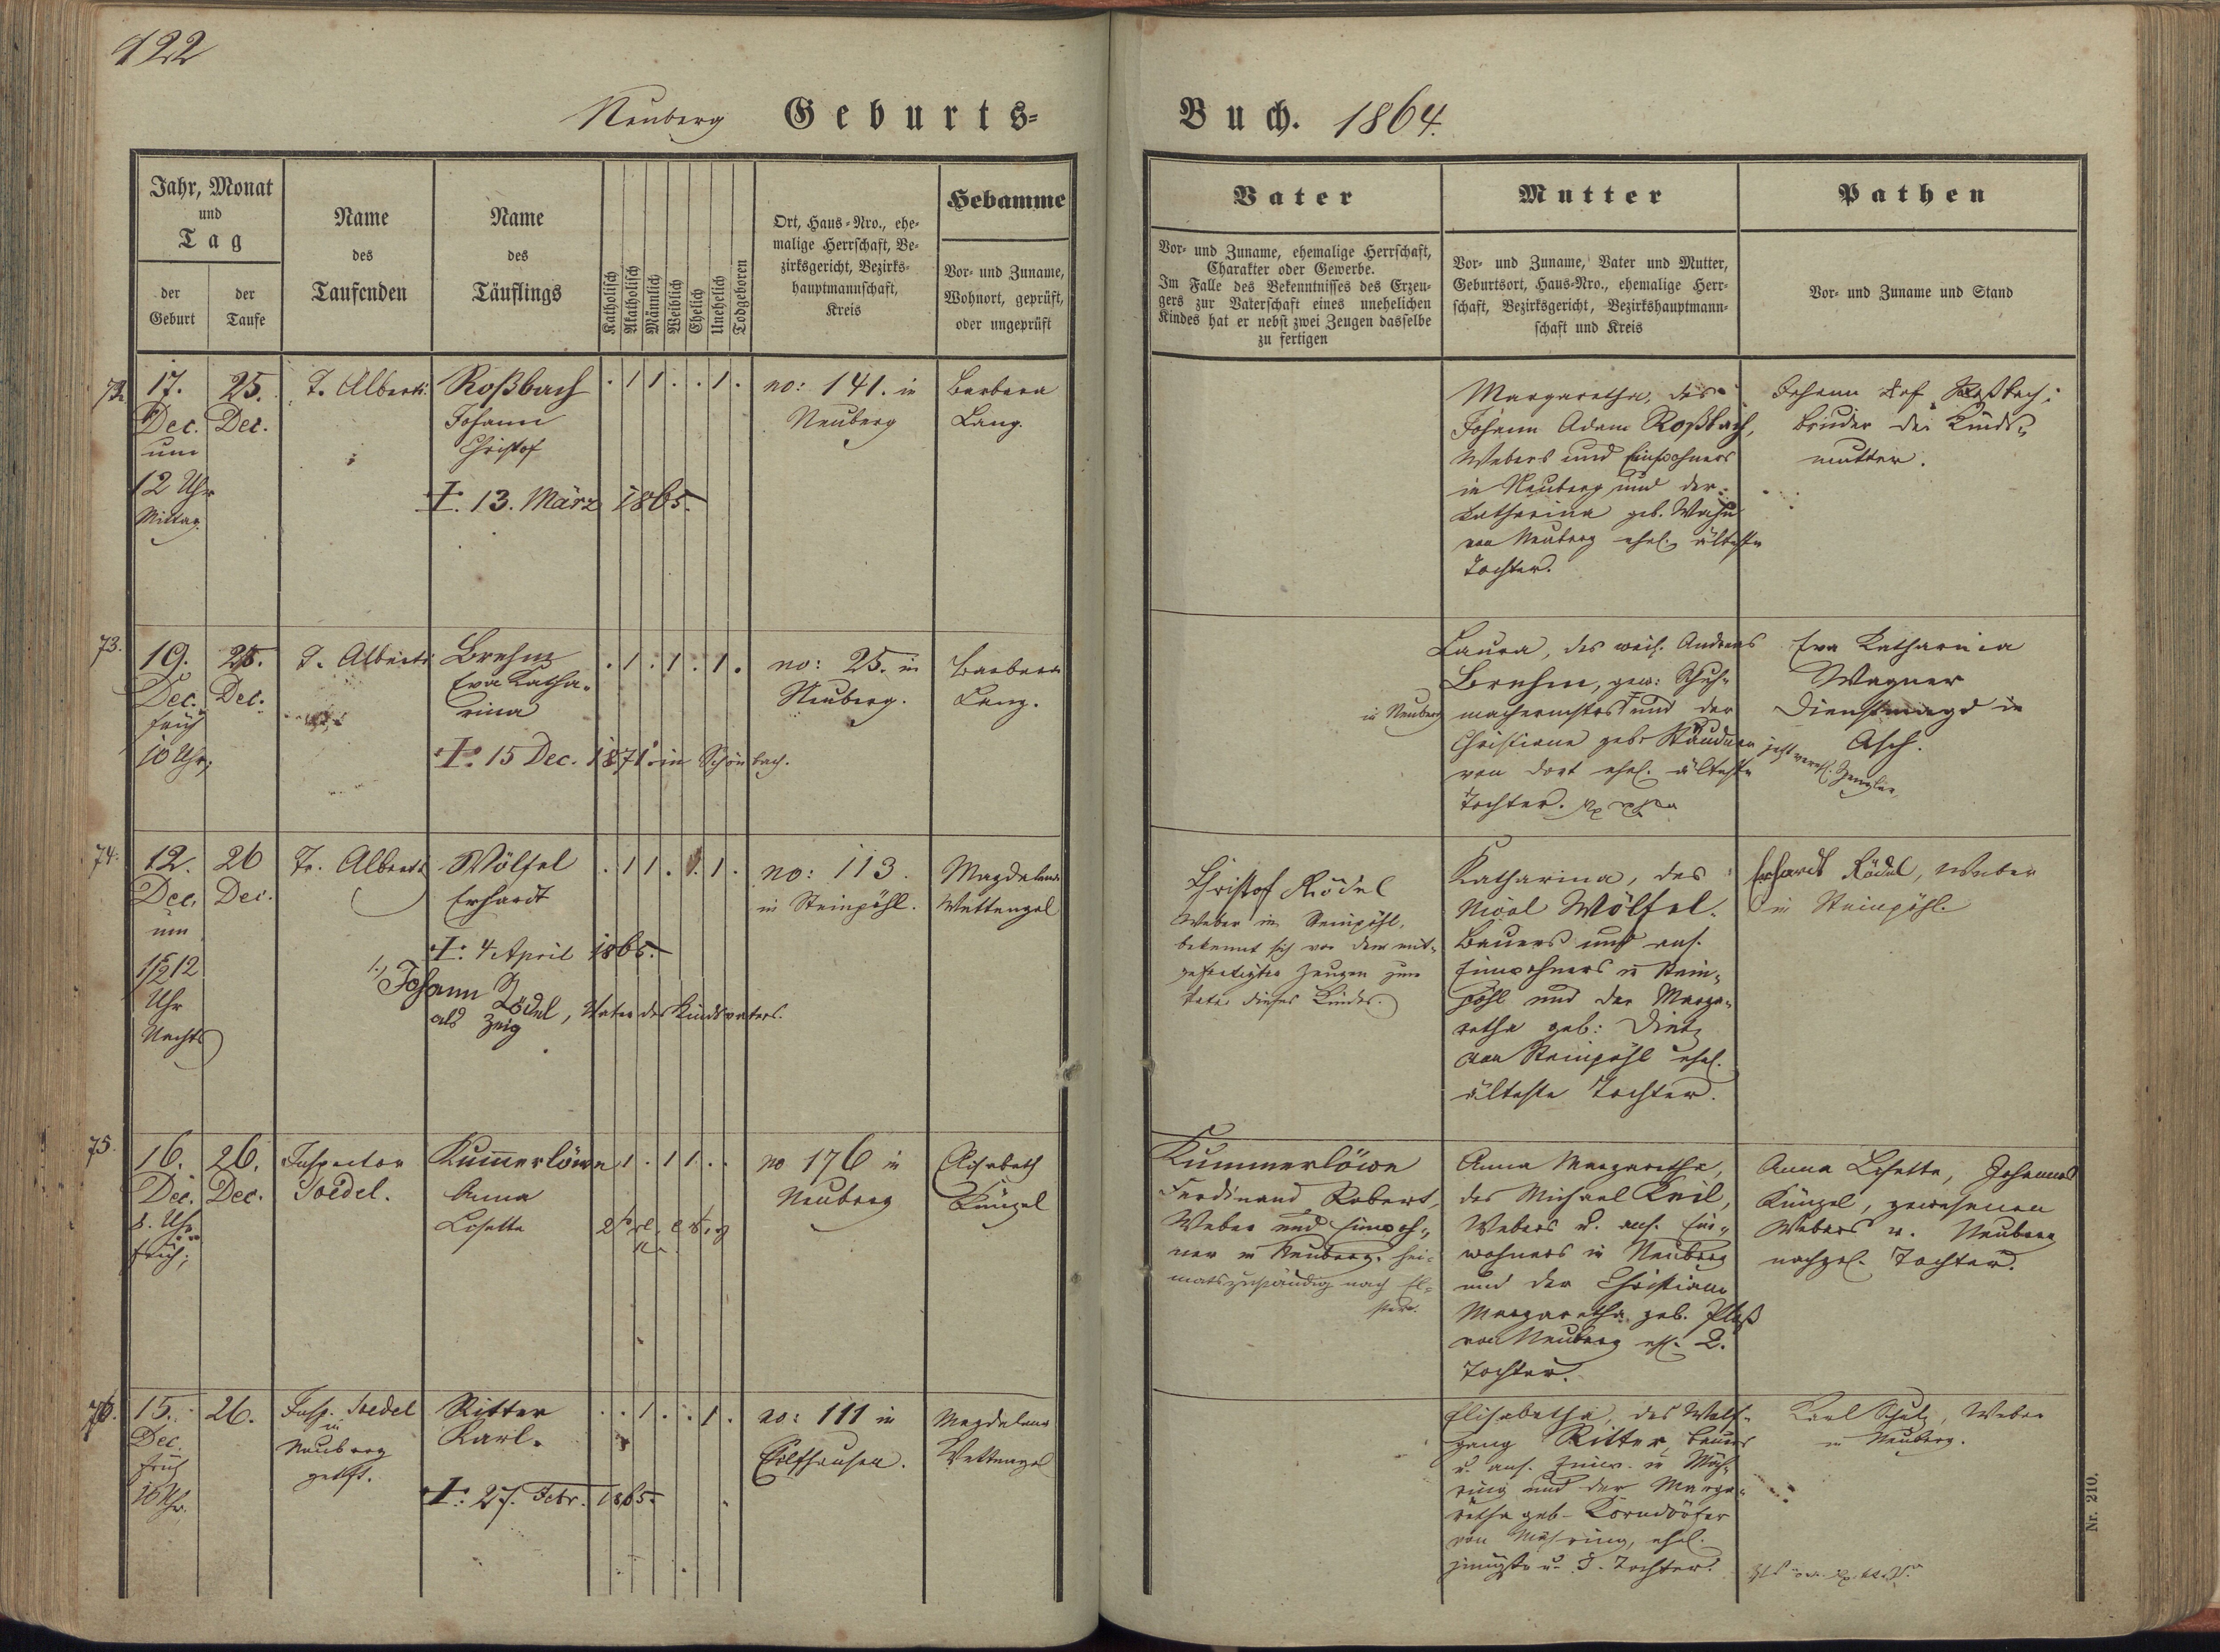 122
Neuberg Geburts=
Buch. 1864.
Jahr, Monat
und
Tag
der
Geburt
der
Taufe
Name
des
Taufenden
Name
des
Täuflings
Katholisch
Akatholisch
Männlich
Weiblich
Ehelich
Unehelich
Todgeboren
Ort, Haus=Nro., ehe=
malige Herrschaft, Be=
zirksgericht, Bezirks=
hauptmannschaft,
Kreis
Hebamme
Vor= und Zuname,
Wohnort, geprüft,
oder ungeprüft
Vater
Vor= und Zuname, ehemalige Herrschaft,
Charakter oder Gewerbe.
Im Falle des Bekenntnisses des Erzeu=
gers zur Vaterschaft eines unehelichen
Kindes hat er nebst zwei Zeugen dasselbe
zu fertigen
Mutter
Vor= und Zuname, Vater und Mutter,
Geburtsort, Haus=Nro., ehemalige Herr=
schaft, Bezirksgericht, Bezirkshauptmann=
schaft und Kreis
Pathen
Vor= und Zuname und Stand
72.
17.
Dec.
um
12 Uhr
Mittag.
25.
Dec.
T. Alberti.
Roßbach
Johann
Christof
13. März 1865.
. 1 1 . . 1 .
no: 141. in
Neuberg
Barbara
Lang.
Margaretha, des
Johann Adam Roßbach,
Webers und Einwohners
in Neuberg und der
Katharina geb.
von Neuberg ehel. älteste
Tochter.
Johann Roßbach,
Bruder der Kinds=
mutter.
73.
19.
Dec.
früh
10 Uhr,
25.
Dec.
T. Alberti
Brehm
Eva Katha=
rina
15 Dec. 1871 in Schönbach.
. 1 . 1 . 1 .
no: 25. in
Neuberg.
Barbara
Lang.
Laura, des weil. Andreas
Brehm, gew: Schuh=
in Neuberg
machermstrs und der
Christiana geb.
von dort ehel. älteste
Tochter.
Eva Katharina
Wagner
Dienstmagd in
Asch.
jetzt verehl.
74.
12.
Dec.
um
1/2 12
Uhr
Nachts
26
Dec.
Fr. Alberti
Wölfel
Erhardt
4 April 1865.
1., Johann Rödel, Vater des Kindsvaters.
als Zeug
. 1 1 . . 1 .
no: 113.
in Steinpöhl.
Magdalena
Wettengel
Christof Rödel
Weber in Steinpöhl,
bekennt sich vor den mit=
gefertigten Zeugen zum
Vater dieses Kindes.
Katharina, des
Nicol Wölfel.
Bauers und ans.
Einwohners in Stein=
pöhl und der Marga=
retha geb: Dietz
von Steinpöhl ehel.
älteste Tochter.
Erhardt Rödel, Weber
in Steinpöhl.
75.
16.
Dec.
8. Uhr
früh;
26.
Dec.
Inspector
Soedel.
Kummerlöwe
Anna
Lisetta
1 . 1 1 . .
no 176 in
Neuberg
Elisabeth
Künzel
Kummerlöwe
Ferdinand Robert,
Weber und Einwoh=
ner in Neuberg. hei=
matszuständig nach El=
ster.
Anna Margaretha,
des Michael Keil,
Webers u. ans. Ein=
wohners in Neuberg
und der Christiana
Margaretha geb. Ploß
von Neuberg ehl. 2.
Tochter.
Anna Lisetta, Johannes
Künzel, gewesenen
Webers in Neuberg
nachgel. Tochter.
76.
15.
Dec.
früh
10 Uhr.
26.
Insp. Soedel
in
Neuberg
getft.
Ritter
Karl.
27. Febr. 1865.
. . 1 . . 1 .
no: 111 in
Magdalena
Wettengel
Elisabetha, des Wolf=
gang Ritter, Bauers
u. ans. Einw. in Mäh=
ring und der Marga=
retha geb. Korndörfer
von Mähring, ehel.
jüngste u. 3. Tochter.
Karl Schulz, Weber
in Neuberg.
Nr. 210.